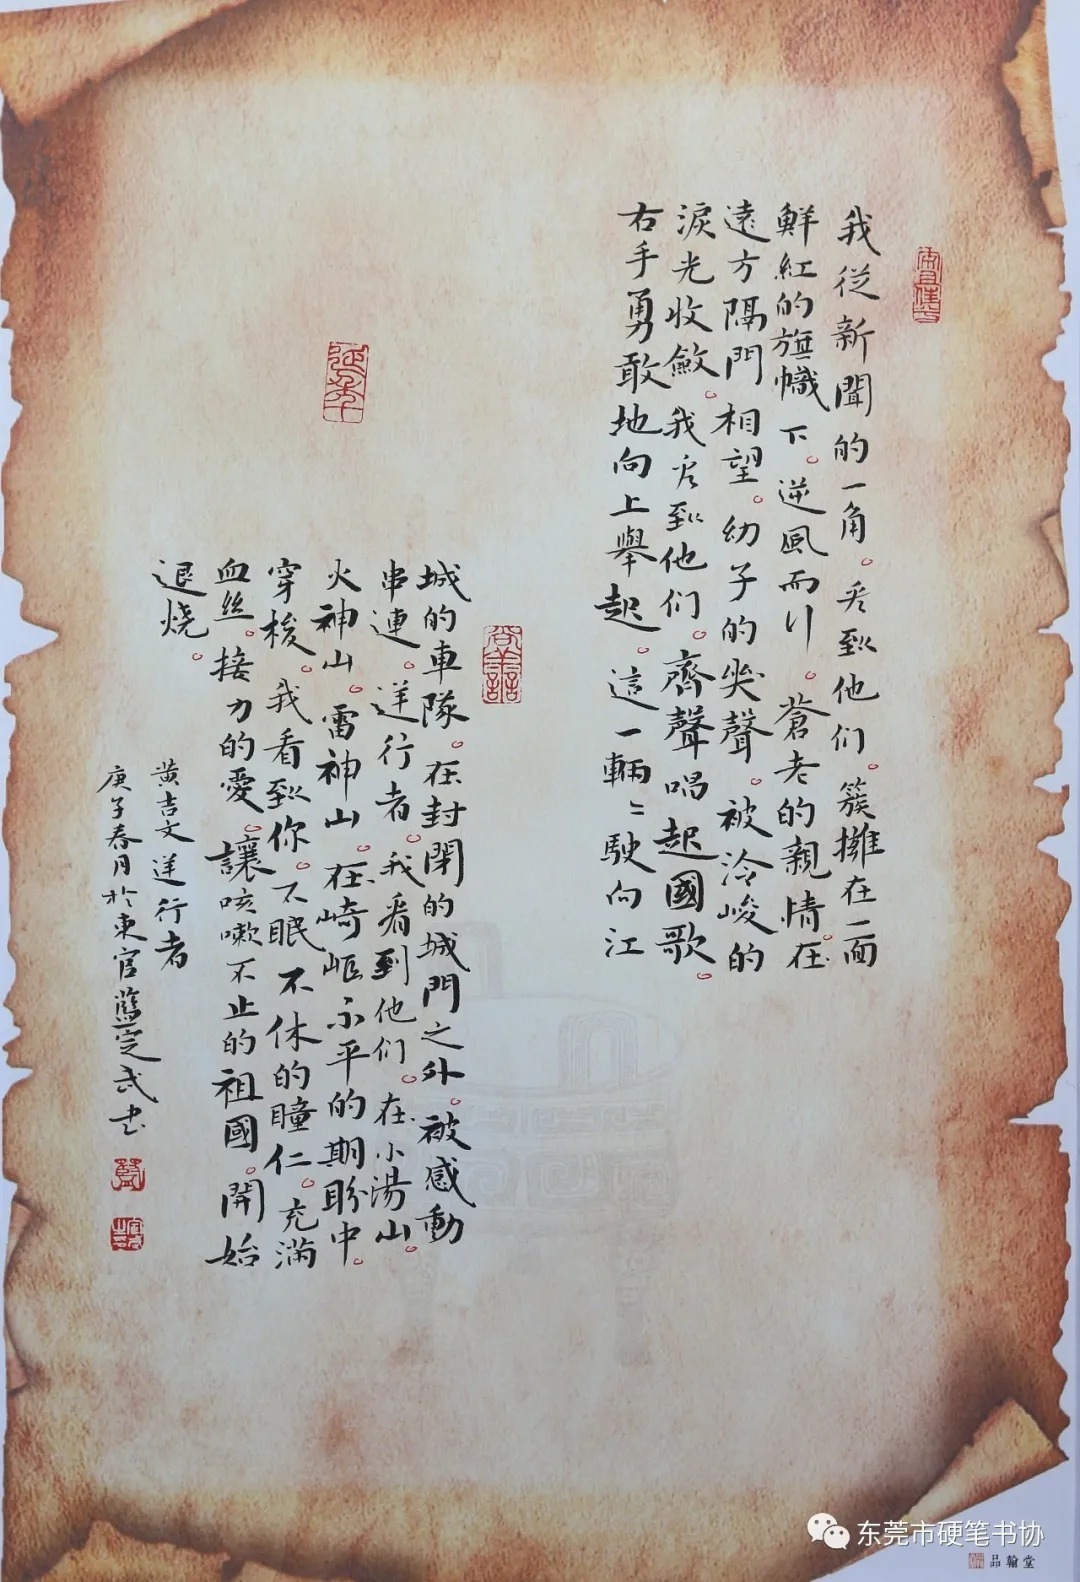 我從新聞的一角。看到他们。簇擁在一面
鮮紅的旗幟下。逆風而行。蒼老的親情。在
遠方隔門相望。幼子的哭聲。被冷峻的
淚光收斂。我看到他们。齊聲唱起國歌。
右手勇敢地向上舉起。這一輛〻駛向江
城的車隊。在封閉的城門之外。被感動
串連。逆行者。我看到他们。在小湯山。
火神山。雷神山。在崎岖不平的期盼中。
穿梭。我看到你。不眠不休的瞳仁。充滿
血丝。接力的愛。讓咳嗽不止的祖國。開始
退烧。
黄吉文逆行者
庚子春月於東官藍定武书
东莞市硬笔书协
品翰堂